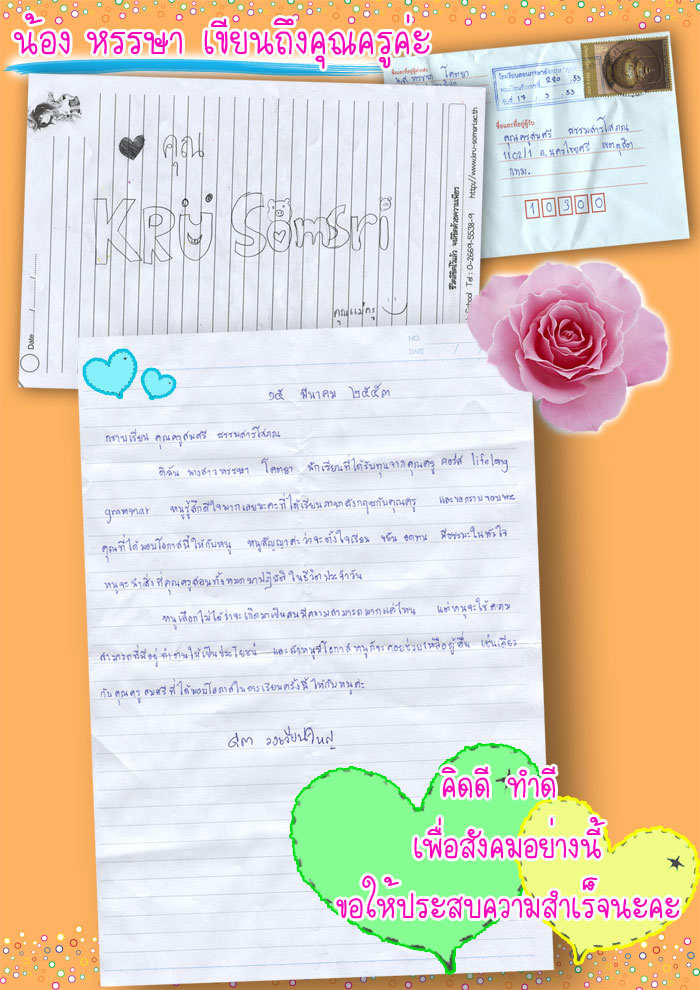 น้อง หรรษา เขียนถึงคุณครูค่ะ
ชื่อและที่อยู่ผู้ส่ง
ชื่อและที่อยู่ผู้รับ
คุณครูสมศรี ธรรมสารโสภณ
1102/1 ถ.นครไชยศรี เขตดุสิต
กทม.
10300
คุณ
KRU Somsri
คุณแม่ครู
http://www.kru-somsri.ac.th
School Tel : 0-2669-5538-9
Date ....../....../......
NO.
DATE / /
๑๕ มีนาคม ๒๕๕๓
กราบเรียน คุณครูสมศรี ธรรมสารโสภณ
ดิฉัน นางสาวหรรษา โคตยา นักเรียนที่ได้รับทุนจากคุณครู คอร์ส lifelong
grammar หนูรู้สึกดีใจมากเลยนะคะที่ได้เรียนภาษาอังกฤษกับคุณครู และขอกราบขอบพระ
คุณที่ได้มอบโอกาสนี้ให้กับหนู หนูสัญญาค่ะว่าจะตั้งใจเรียน ขยัน อดทน มีธรรมะในหัวใจ
หนูจะนำสิ่งที่คุณครูสอนทั้งหมดมาปฏิบัติในชีวิตประจำวัน
หนูเลือกไม่ได้ว่าจะเกิดมาเป็นคนมีความสามารถมากแค่ไหน แต่หนูจะใช้ความ
สามารถที่มีอยู่ทำตนให้เป็นประโยชน์ และถ้าหนูมีโอกาสหนูก็จะคอยช่วยเหลือผู้อื่น เช่นเดียว
กับคุณครูสมศรีที่ได้มอบโอกาสในการเรียนครั้งนี้ให้กับหนูค่ะ
วงเวียนใหญ่
คิดดี ทำดี
เพื่อสังคมอย่างนี้
ขอให้ประสบความสำเร็จนะคะ